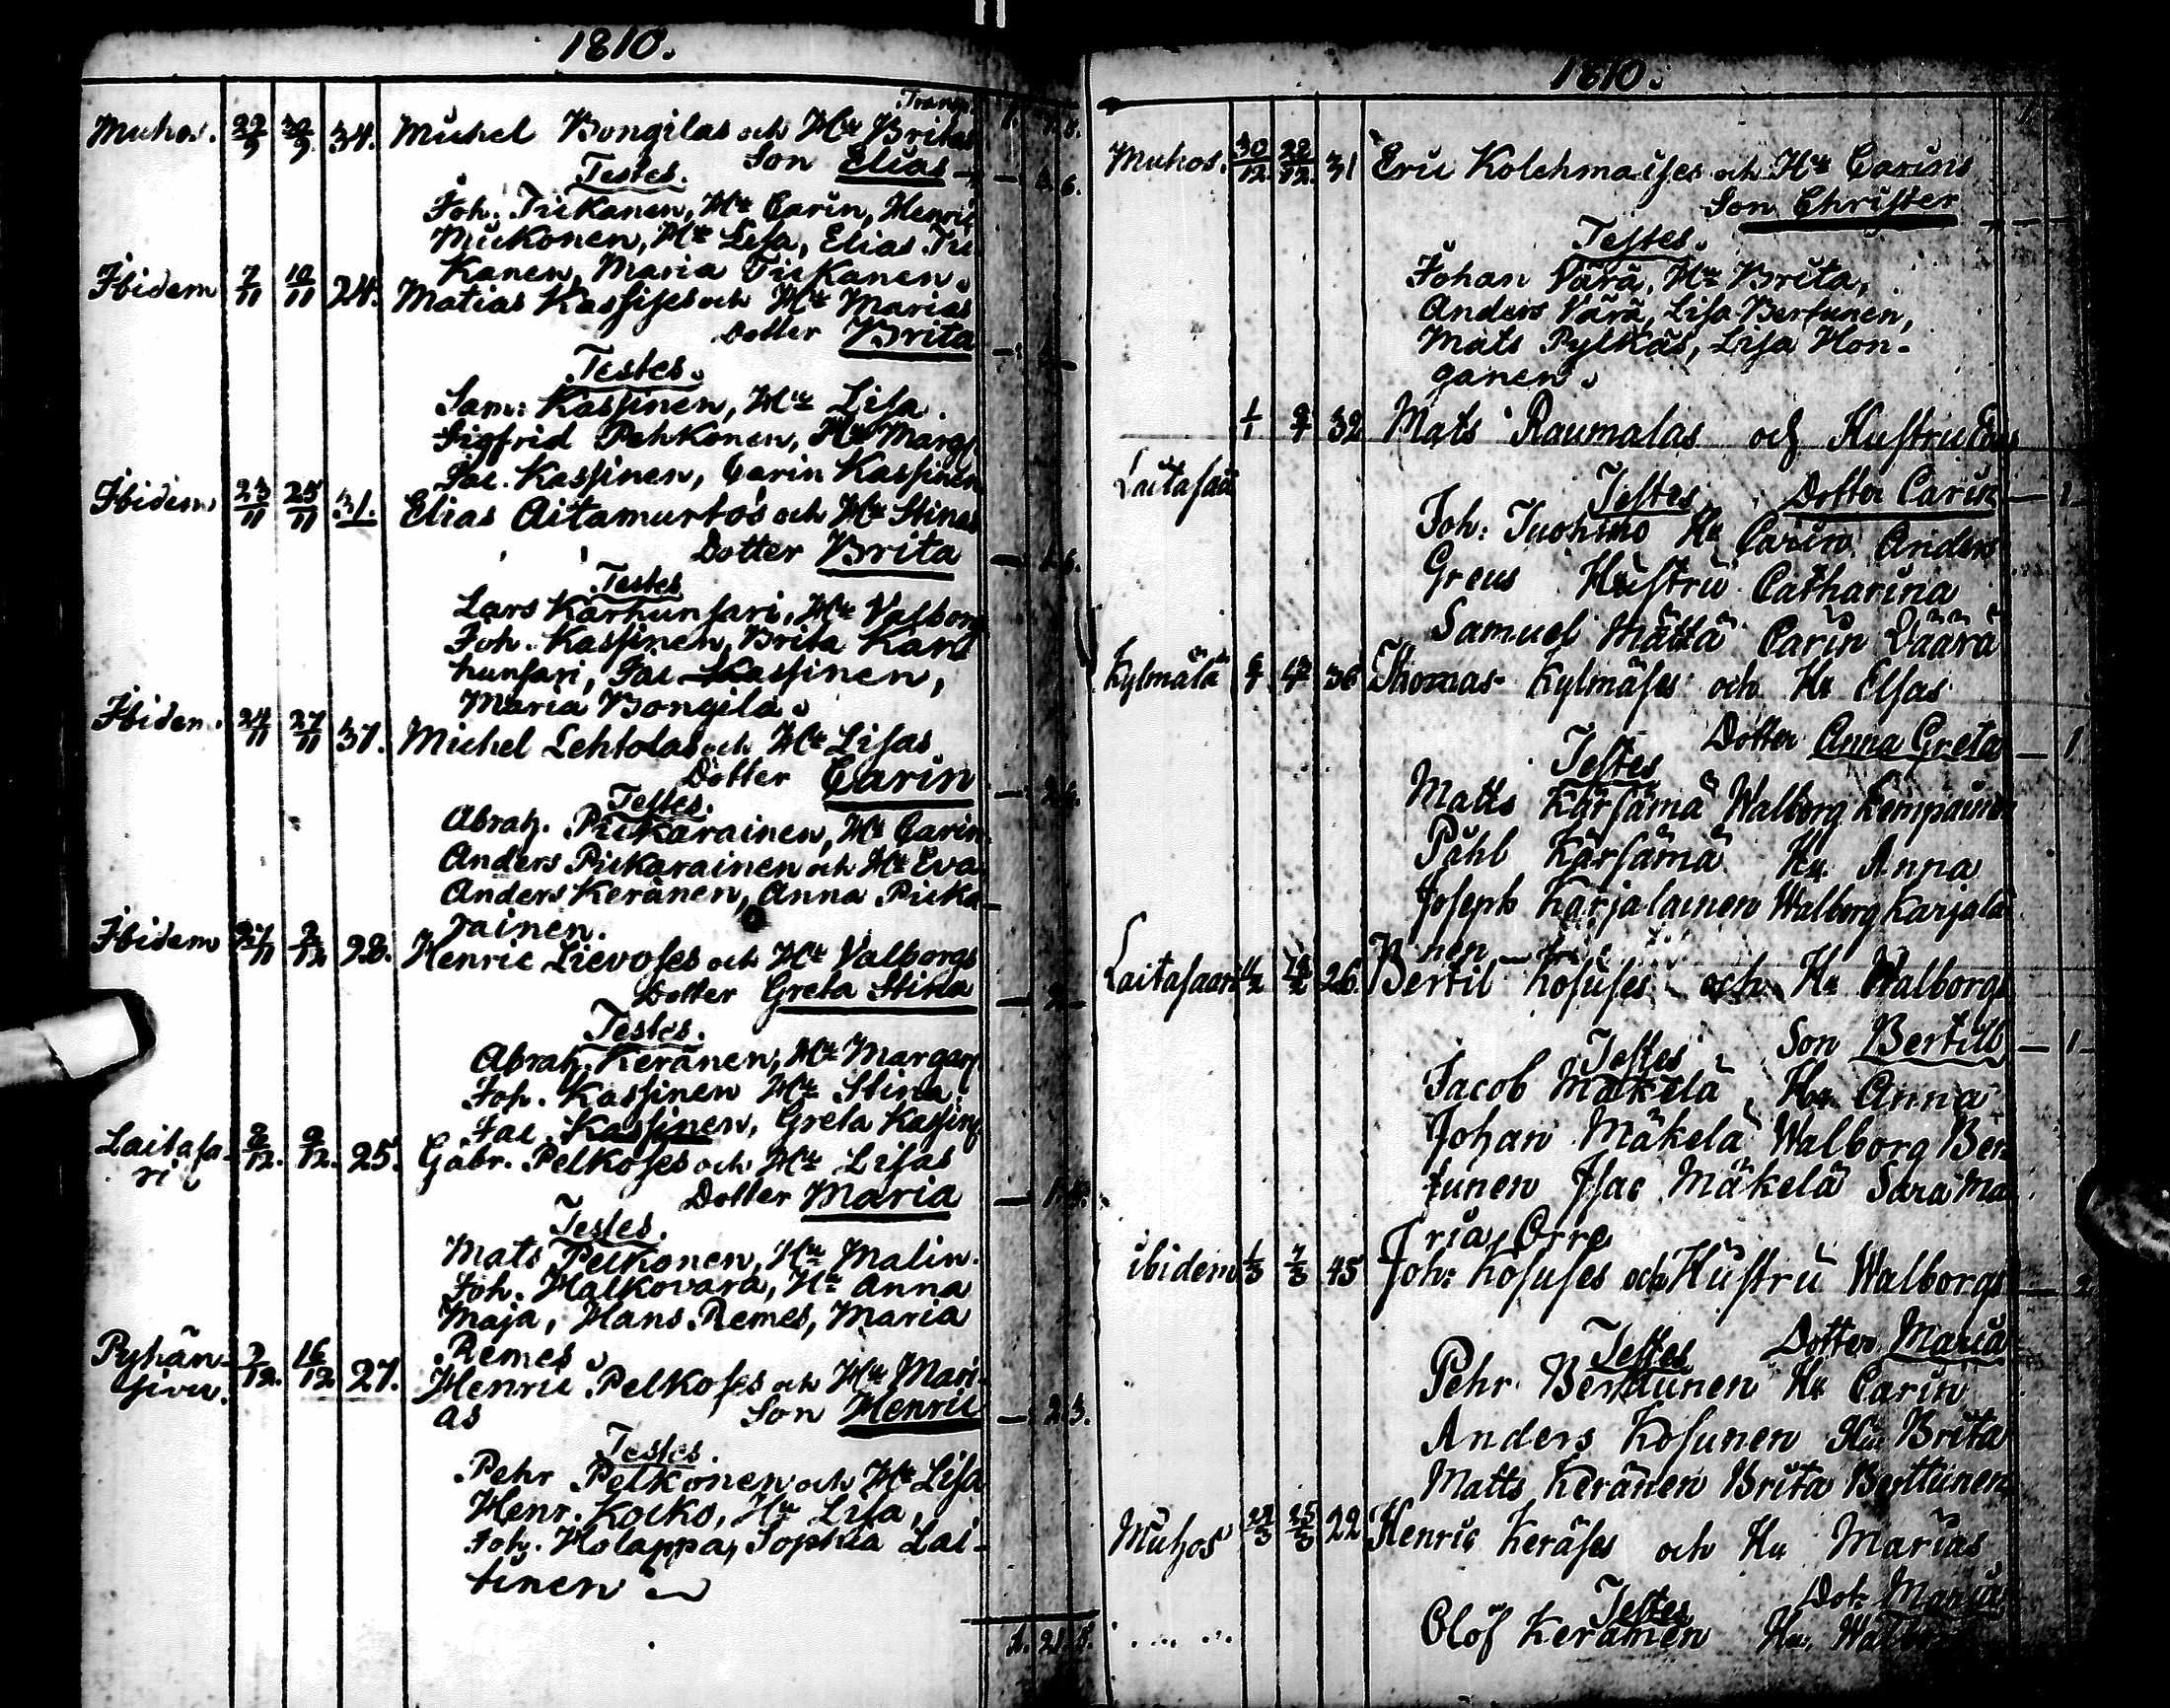 1810.
Transp.
Muhos. 22/9 30/9 34. Michel Bongilas och Hu Britas
Son Elias
Testes.
Joh. Tiikanen, Hu Carin, Henric
Muikonen, Hu Lisa, Elias Tii
Kanen, Maria Tiikanen.
Ibidem 7/11 10/11 24. Matias Kassises och Hu Marias
Dotter Brita
Testes.
Sam: Kassinen, Hu Lisa.
Sigfrid Pehkonen, Hu Marg
Jac. Kassinen, Carin Kassinen
Ibidem 23/11 25/11 31. Elias Aitamurtos och Hu Stinas
Dotter Brita
Testes
Lars Karhunsari, Hu Valborg
Joh. Kassinen, Brita Kar
hunsari, Jac Kassinen,
Maria Bongila.
Ibidem. 24/11 27/11 37. Michel Lehtolas och Hu Lisas
Dotter Carin
Testes.
Abrah. Piikarainen, Hu Carin
Anders Piikarainen och Hu Eva
Anders Keränen, Anna Piika-
rainen.
Ibidem 2/12 28. Henric Lievoses och Hu Valborgs
Dotter Greta Stina
Testes.
Abrah. Keränen, Hu Margar
Joh. Kassinen Hu Stina.
Jac. Kassinen, Greta Kassin
Laitasa-
ri 2/12. 9/12. 25. Gabr. Pelkoses och Hu Lisas
Dotter Maria
Testes.
Mats Pelkonen, Hu Malin.
Joh. Halkovara, Hu Anna
Maja, Hans Remes, Maria
Remes.
Pyhän-
sivu. 7/12. 16/12 27. Henric Pelkoses och Hu Mari-
as Son Henric
Testes.
Pehr Pelkonen och Hu Lisa
Henr. Kocko, Hu Lisa,
Joh. Holappa, Sophia Lai-
tinen
1810.
Muhos. 30/12. 31 Eric Kolehmaises och Hu Carins
Son Christer
Testes.
Johan Värä, Hu Brita,
Anders Värä, Lisa Bertunen,
Mats Pylkäs, Lisa Hon-
ganen.
Laitasaari 1/1 32 Mats Raumalas och Hustru
Testes Dotter Carin 1
Joh: Tuohino Hu Carin Anders
Greus Hustru Catharina
Samuel Mättä Carin Väärä
Kylmälä 36 Thomas Kylmäses och Hu Elsas
Dotter Anna Greta 1
Testes
Matts Kärsämä Walborg Kempainen
Påhl Kärsämä Hu Anna
Joseph Karjalainen Walborg Karjalai
nen
Laitasaari 26 Bertil Kosuses och Hu Walborgs
Son Bertill 1
Testes
Jacob Mäkelä Hu Anna
Johan Mäkelä Walborg Ber
tunen Isac Mäkelä Sara Ma
ria Orre
ibidem 1/3 45 Joh: Kosuses och Hustru Walborgs 2
Testes Dotter Maria
Pehr Berttunen Hu Carin
Anders Kosunen Hu Brita
Matts Keränen Brita Berttunen
Muhos 25/3 22 Henric Keräses och Hu Marias
Dot. Maria
Testes
Olof Keränen Hu